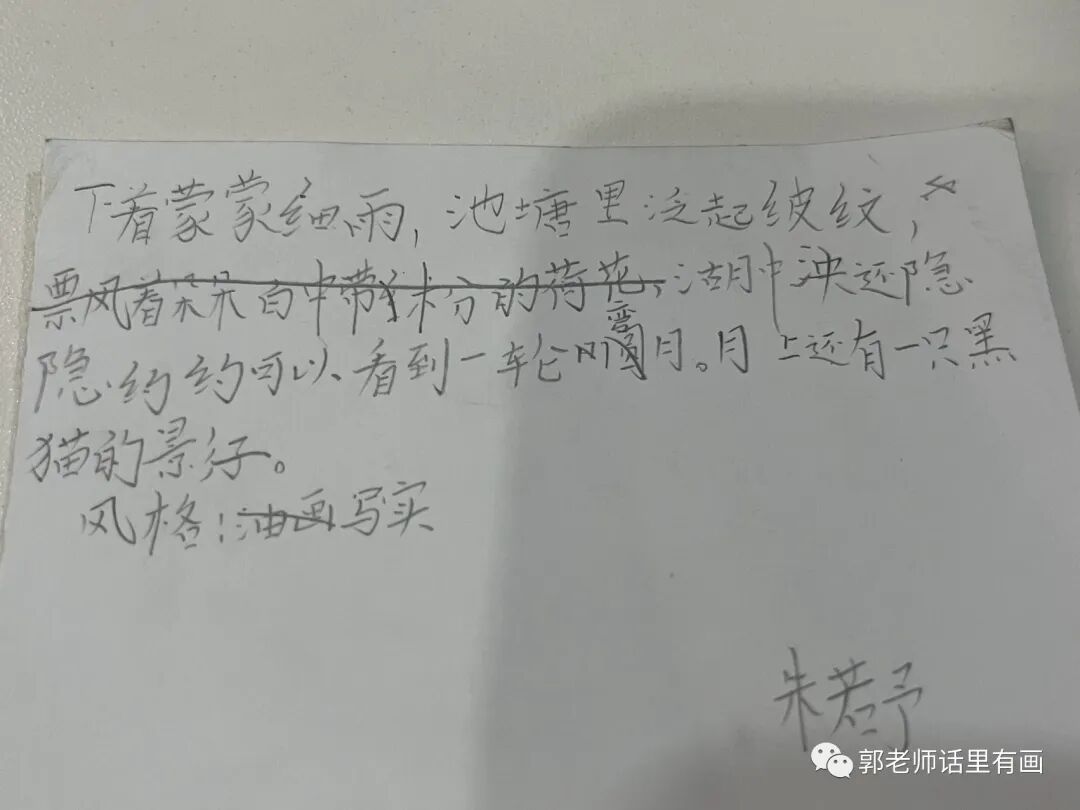 下着蒙蒙细雨，池塘里泛起波纹，
票风着朵朵白中带粉的荷花，湖中泱还隐
隐约约可以看到一轮弯月。月上还有一只黑
猫的景行。
风格：油画写实
朱若予
郭老师话里有画